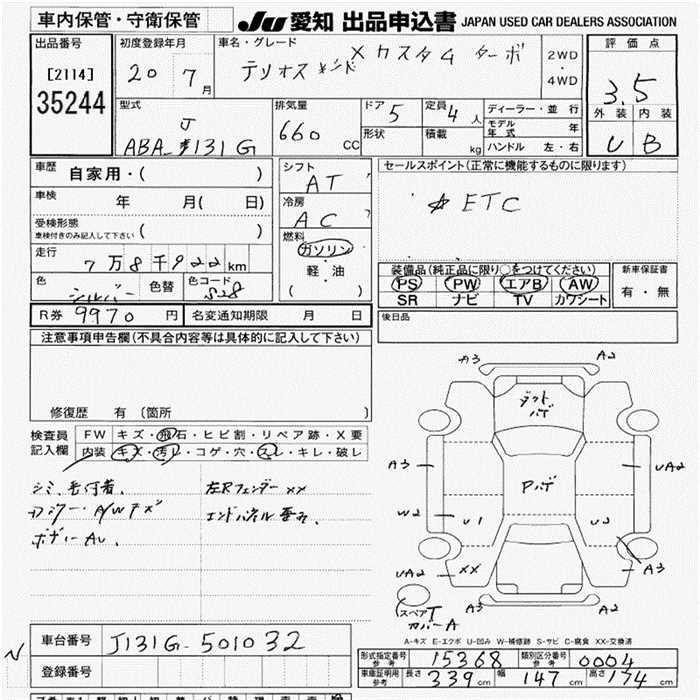 車内保管・守衛保管
JU 愛知 出品申込書 JAPAN USED CAR DEALERS ASSOCIATION
出品番号
[2114]
35244
初度登録年月
20 7月
車名・グレード
テリオスキッド
Xカスタム ターボ
2WD
・
4WD
評価点
3.5
外装 内装
B
型式
J
ABA-J131G
排気量
660 CC
ドア 5
形状
定員 4人
積載 kg
ディーラー・並行
モデル年式 年
ハンドル 左・右
車歴 自家用・( )
車検 年 月( 日)
受検形態
車検付きのみ記入して下さい ( )
走行
7万8千922km
色 シルバー
色替
色コード S28
R券 9970円
名変通知期限 月 日
シフト
AT
冷房
AC
燃料
ガソリン
・
軽・油
( )
セールスポイント(正常に機能するものに限ります)
ETC
装備品(純正品に限り○をつけてください)
PS PW エアB AW
SR ナビ TV カワシート
新車保証書
有・無
後日品
注意事項申告欄(不具合内容等は具体的に記入して下さい)
修復歴 有 (箇所 )
検査員
記入欄
FW キズ・飛石・ヒビ割・リペア跡・X要
内装 キズ・汚レ・コゲ・穴・スレ・キレ・破レ
シミ、毛付着、
左Rフェンダー XX
カラー・A/Wキズ
エンドパネル歪み、
ボディーAU、
A3 A2
ダクト
ハゲ
A3
Pハゲ
UA2
W2
U1
U2
UA2
XX
A3
スペアT
カバーA
A3 A2
A-キズ E-エクボ U-凹み W-補修跡 S-サビ C-腐食 XX-交換済
車台番号 J131G-501032
登録番号
形式指定番号 参考 15368
類別区分番号 参考 0004
車庫証明用 参考 長さ 339cm 幅 147cm 高さ 174cm